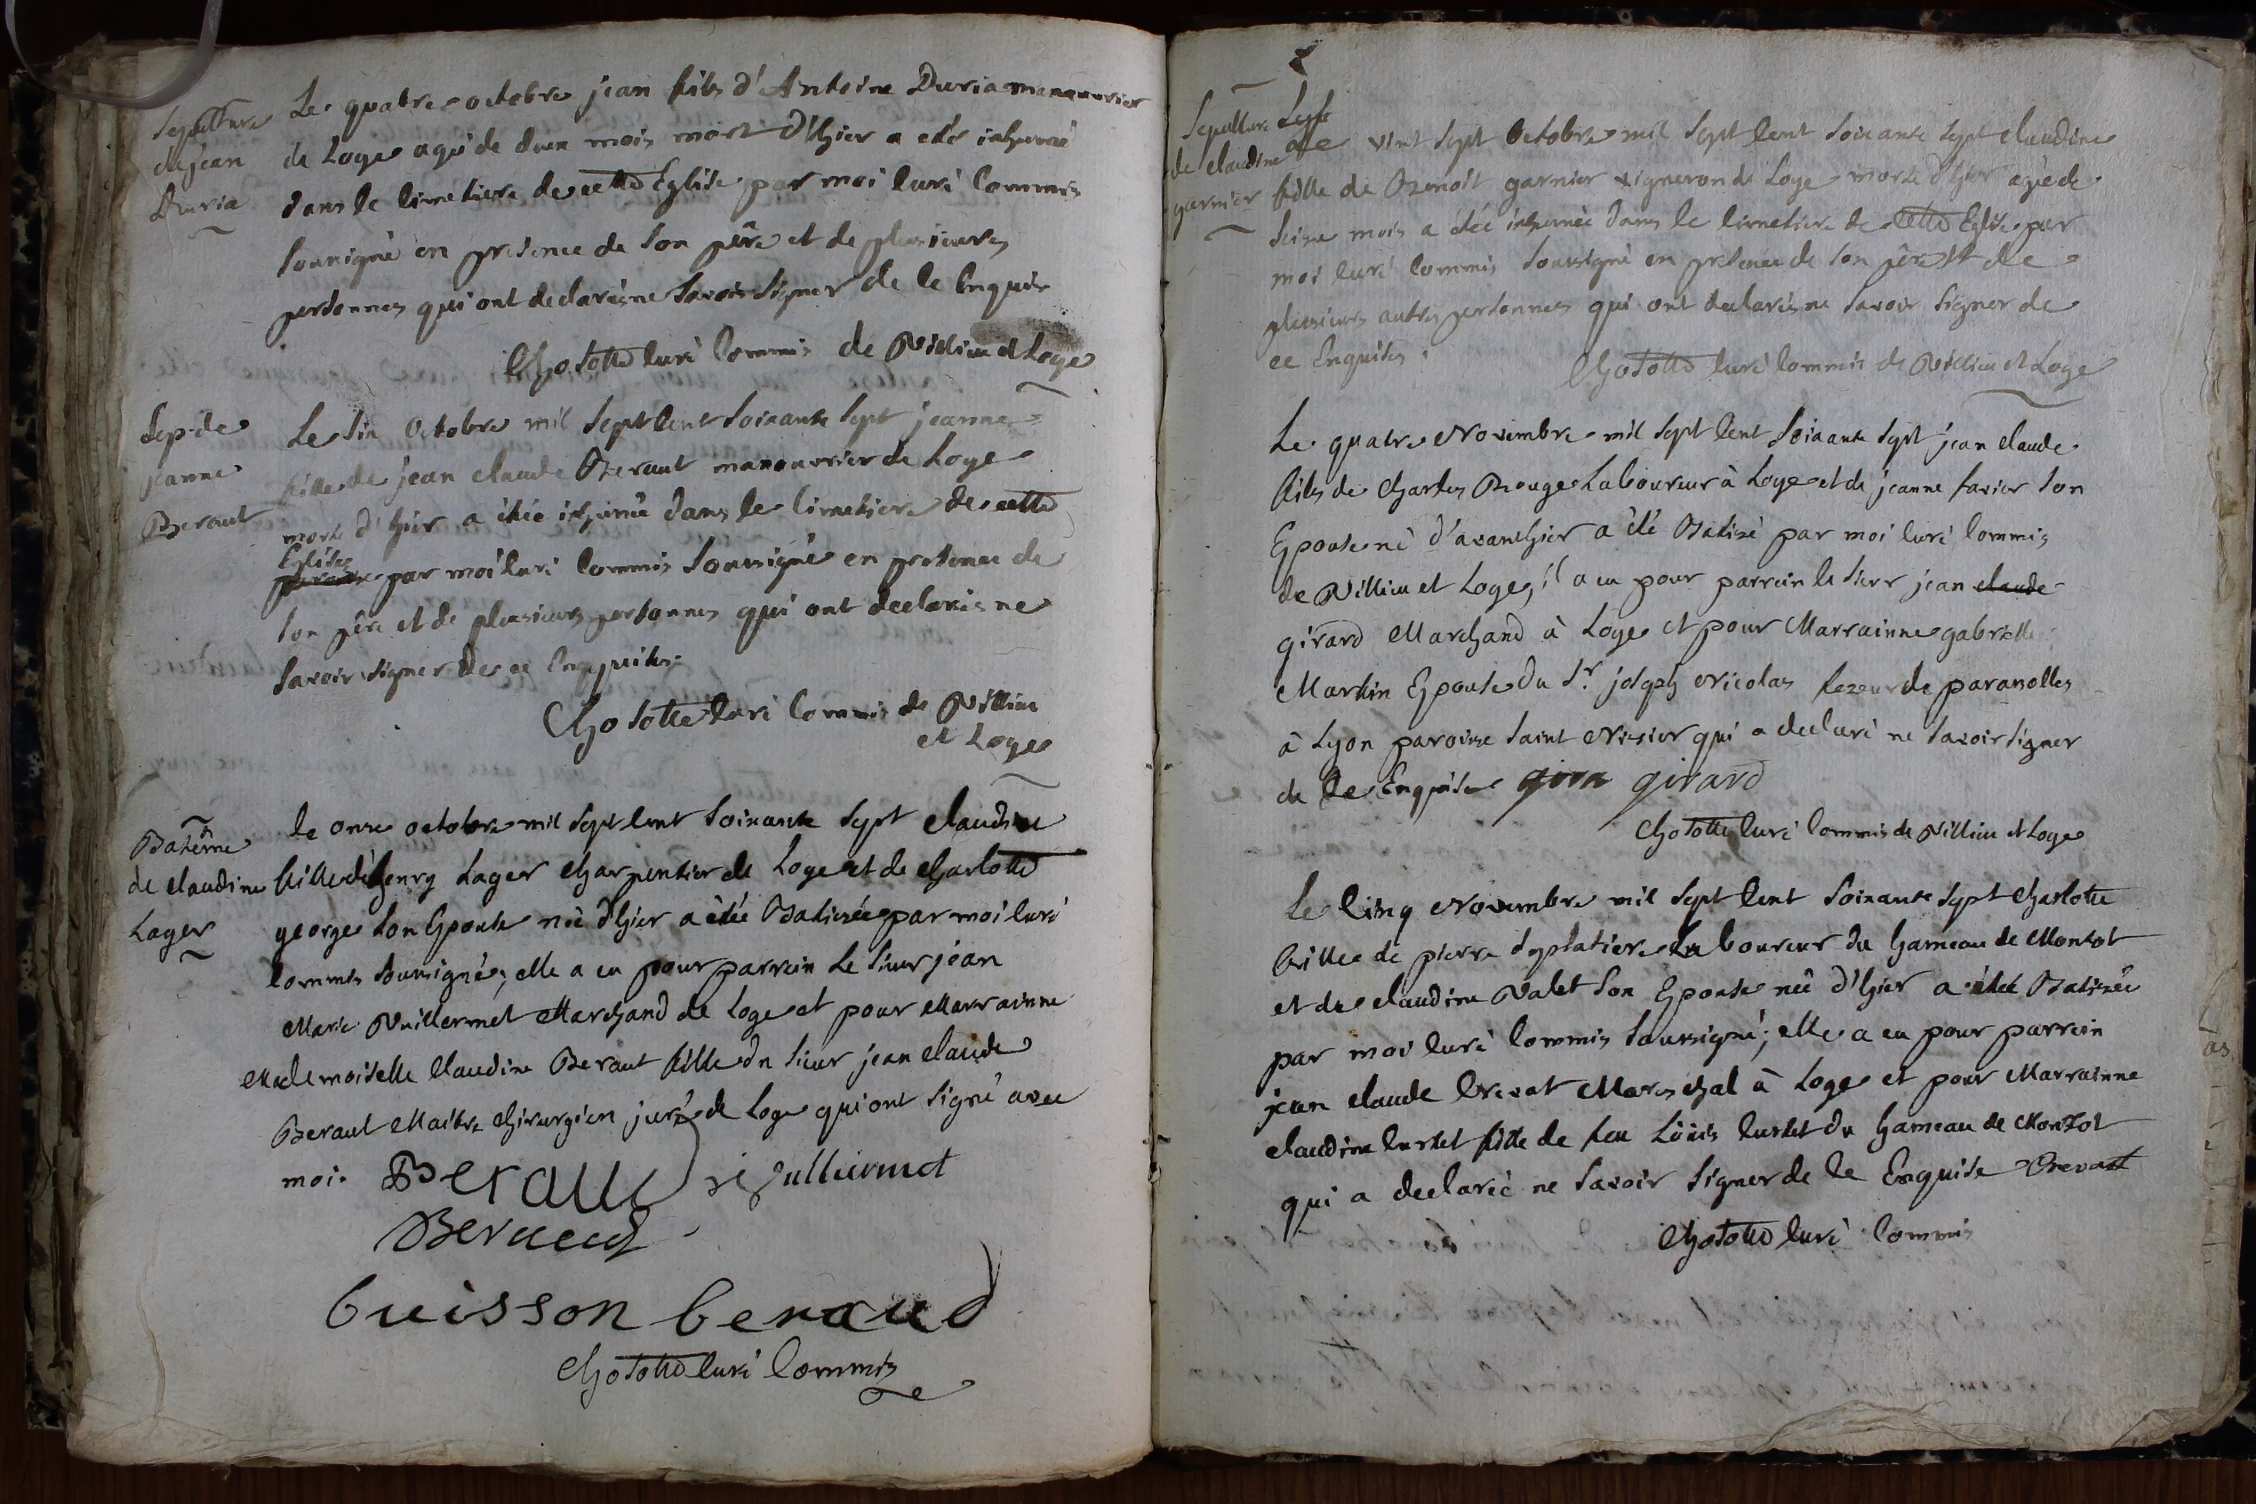 Sepulture
de jean
Duria
Le quatre octobre jean fils d'Antoine Duria manouvrier
de Loye agé de deux mois mort d'hier a eté inhumé
dans le Cimetiere de cette Eglise par moi Curé Commis
Sousigné en presence de Son pêre et de plusieures
personnes qui ont declarés ne Savoir Signer de Ce Enquis
Chosotte Curé Commis de Villieu et Loye
Sep. de
jeanne
Beraut
Le Six Octobre mil Sept Cent Soixante Sept jeanne
fille de jean claude Beraut manouvrier de Loye
morte d'hier a étée inhumée dans le Cimetiere de cette
Eglise par moi Curé Commis Soussigné en presence de
Son pêre et de plusieurs personnes qui ont declarés ne
Savoir Signer de ce Enquises
Chosotte Curé Commis de Villieu
et Loye
Batême
de claudine
Lager
le onze octobre mil Sept Cent Soixante Sept claudine
fille d'henry Lager charpentier de Loye et de charlotte
george Son Epouse née d'hier a étée Batisée par moi Curé
Commis Soussigné; elle a eu pour parrein Le Sieur jean
Marie Vuillermet Marchand de Loye et pour Marrainne
Mademoiselle Claudine Beraut fille du Sieur jean claude
Beraut Maitre chirurgien juré de Loye qui ont Signé avec
moi. Beraut Vuilliermet
Beraud
buisson beraud
Chosotte Curé Commis
Sepulture
de claudine
garnier
Le vint Sept Octobre mil Sept Cent Soixante Sept claudine
fille de Benoit garnier vigneron de Loye morte d'hier agée de
Seize mois a étée inhumée dans le Cimetiere de Cette Eglise par
moi Curé Commis Soussigné en presence de Son pêre et de
plusieurs autres personnes qui ont declarés ne Savoir Signer de
ce Enquises
Chosotte Curé Commis de Villieu et Loye
Le quatre Novembre mil Sept Cent Soixante Sept jean claude
fils de charles Rouge Laboureur à Loye et de jeanne favier Son
Epouse né d'avanthier a été Batisé par moi Curé Commis
de Villieu et Loye, il a eu pour parrein le Sieur jean claude
girard Marchand à Loye et pour Marrainne gabrielle
Martin Epouse du Sr. joseph Nicolas fezeur de paranolles
à Lyon paroisse Saint Nisier qui a declaré ne Savoir Signer
de Ce Enquise girard
Chosotte Curé Commis de Villieu et Loye
Le Cinq Novembre mil Sept Cent Soixante Sept Charlotte
fille de pierre Desplatiere Laboureur du hameau de Monzot
et de claudine Valet Son Epouse née d'hier a étée Batisée
par moi Curé Commis Soussigné; elle a eu pour parrein
jean claude Crevat Mareschal à Loye et pour Marrainne
claudine Curtet fille de feu Loüis Curtet du hameau de Monzot
qui a declaré ne Savoir Signer de Ce Enquise Crevat
Chosotte Curé Commis